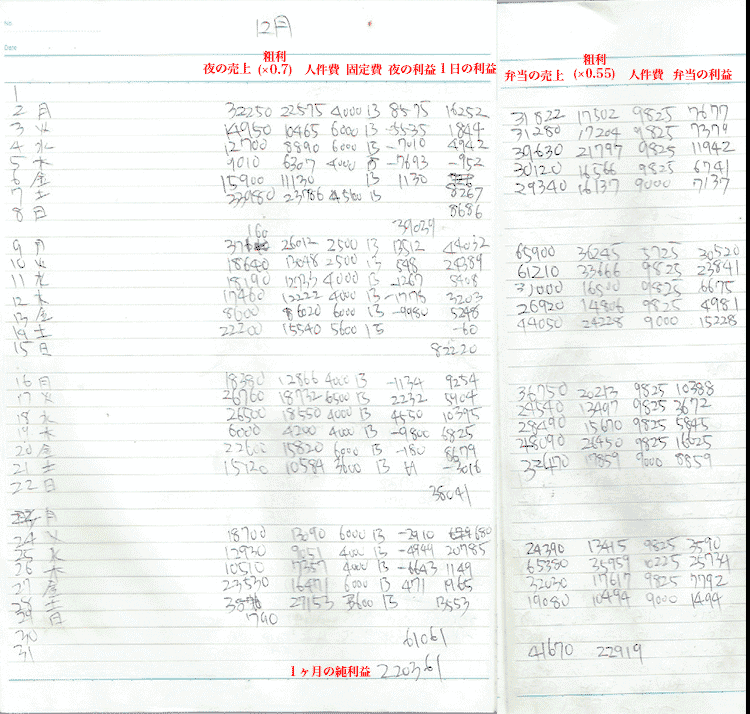 No.
Date
12月
粗利
夜の売上 (×0.7) 人件費 固定費 夜の利益 1日の利益
粗利
弁当の売上 (×0.55) 人件費 弁当の利益
1
2 月 32250 22575 4000 13 8575 16252 31822 17502 9825 7677
3 火 14950 10465 6000 13 -5535 1844 31280 17204 9825 7379
4 水 12700 8890 6000 13 -7010 4942 39630 21797 9825 11942
5 木 9010 6307 4000 13 -7693 -952 30120 16566 9825 6741
6 金 15900 11130 13 1130 29340 16137 9000 7137
7 土 33980 23786 4500 13 8267
8 日 8686
39039
9 月 26012 2500 13 13512 44032 65900 36245 5725 30520
10 火 18640 13048 2500 13 548 24389 61210 33666 9825 23841
11 水 18190 12733 4000 13 -1267 5408 31000 16500 9825 6675
12 木 17460 12222 4000 13 -1778 3203 26920 14806 9825 4981
13 金 8600 6020 6000 13 -9980 5248 44050 24228 9000 15228
14 土 22200 15540 5600 13 -60
15 日 82220
16 月 18380 12866 4000 13 -1134 9254 36750 20213 9825 10388
17 火 26760 18732 6500 13 2232 5904 24540 13497 9825 3672
18 水 26500 18550 4000 13 4550 10395 28490 15670 9825 5845
19 木 6000 4200 4000 13 -9800 6825 48090 26450 9825 16625
20 金 22600 15820 6000 13 -180 8679 32470 17859 9000 8859
21 土 15120 10584 3600 13 -3016
22 日 38041
月
24 火 18700 13090 6000 13 -2910 680 24390 13415 9825 3590
25 水 12930 9051 4000 13 -4949 20785 65380 35959 10225 25734
26 木 10510 7357 4000 13 -6643 1149 32030 17617 9825 7792
27 金 23530 16471 6000 13 471 1965 19080 10494 9000 1494
28 土 27153 3600 13 13553
29 日 1790
30 61061
31 41670 22919
1ヶ月の純利益 220361